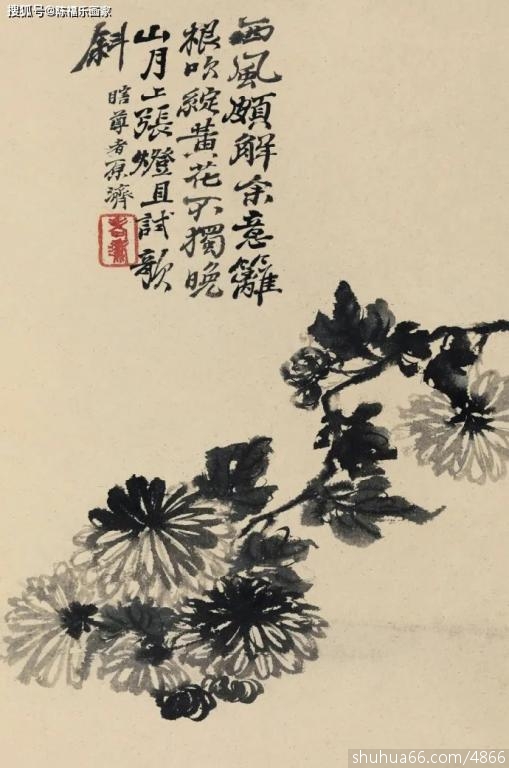 搜狐号@陈福乐画家
西風頗解余意籬
根吹綻黃花不獨晚
山月上張燈且試欹
斜
瞎尊者原濟
shuhua66.com/4866